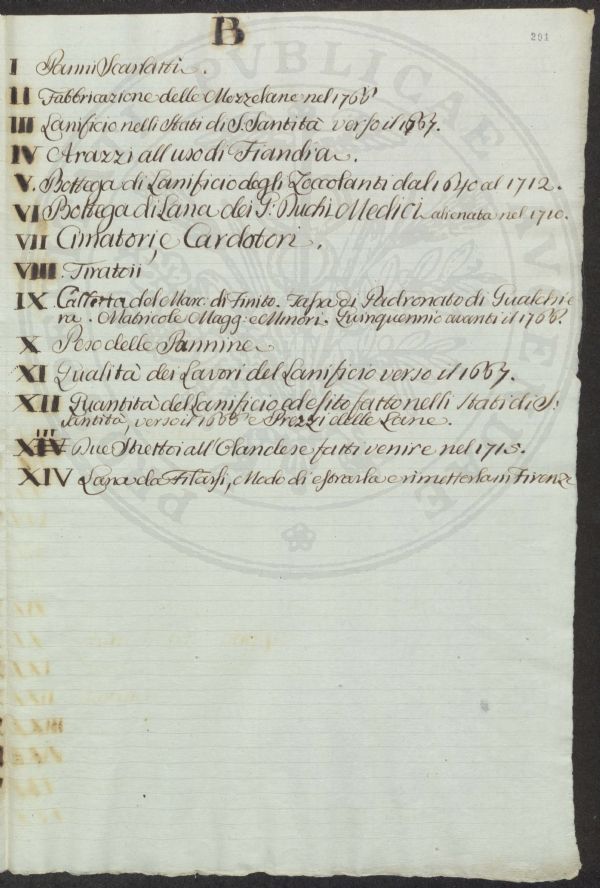 B
201
I Panni Scarlatti.
II Fabbricazione delle Mezzelane nel 1768
III Lanificio nelli Stati di S. Santità verso il 1667.
IV Arazzi all uso di Fiandra.
V. Bottega di Lanificio degli Zoccolanti dal 1640 al 1712.
VI Bottega di Lana dei S. Duchi Medici alienata nel 1710.
VII Cimatori, e Cardatori.
VIII. Tiratoii
IX del Marc: di Finito. Tassa di Padronato di Gualchie
ra. Matricole Magg: e Minori. Quinquennio avanti il 1768.
X Peso delle Pannine
XI Qualità dei Lavori del Lanificio verso il 1667.
XII Quantità del Lanificio ed esito fatto nelli Stati di S:
Santità, verso il 1668 e Prezzi delle Lane.
XIII Due Strettoi all'Olandese fatti venire nel 1715.
XIV Lana da Filarsi, Modo di estrarla e rimetterla in Firenze
PUBLICAE